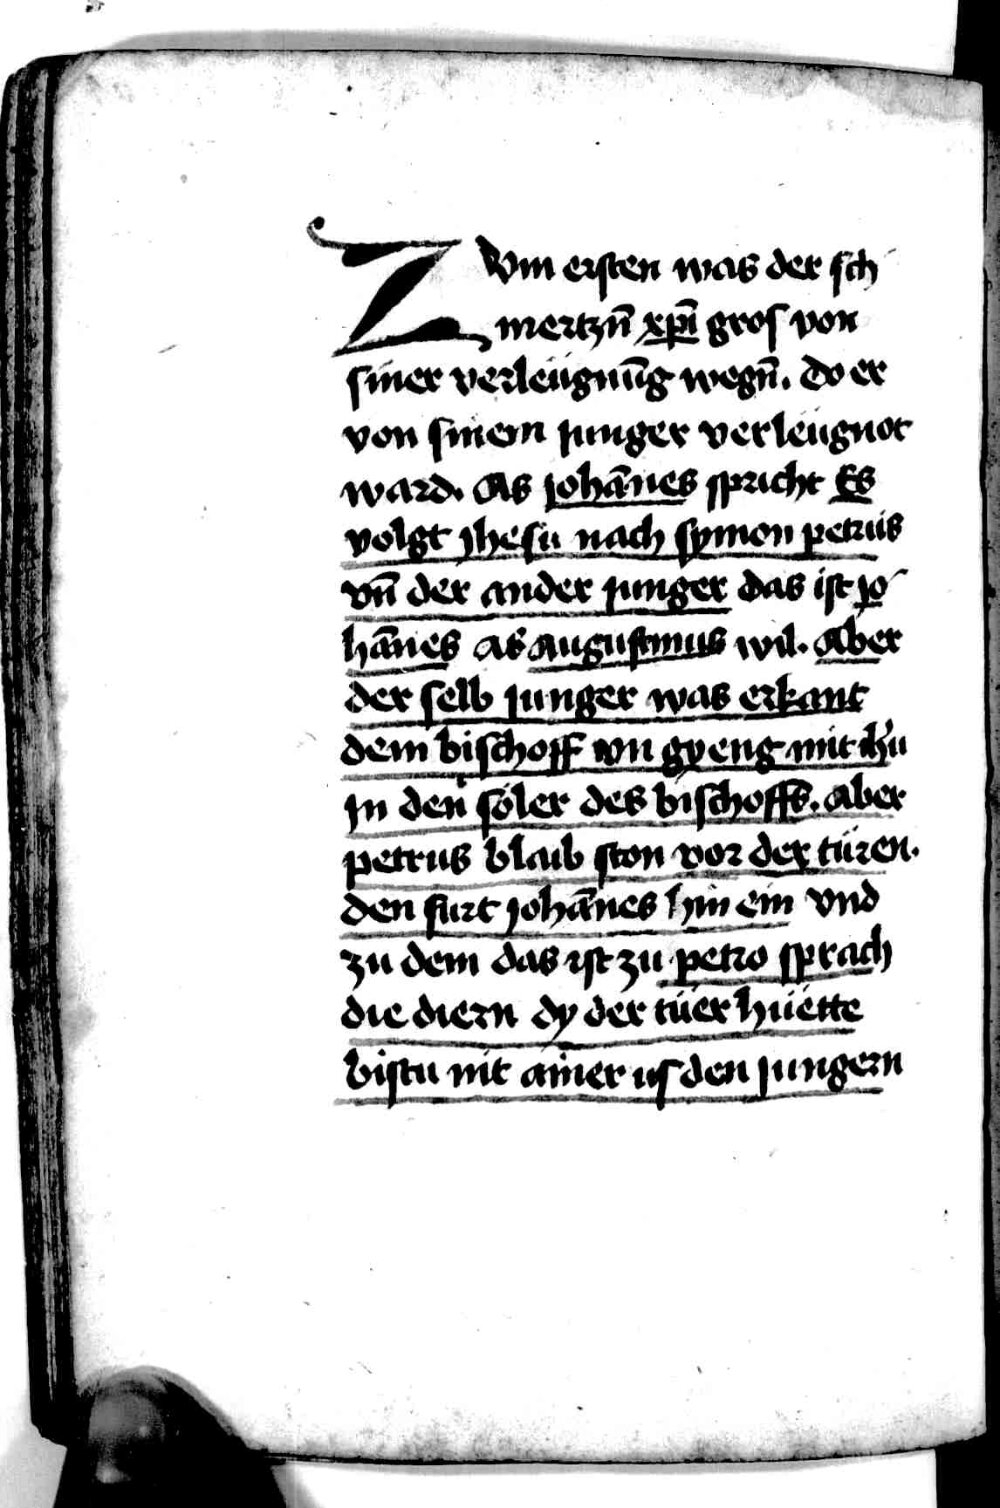 Zvm ersten was der sch
mertzn̄ xp̄i gros von
siner verleügnūg wegn̄. do er
von sinem junger verleügnot
ward. As johānes spricht Es
volgt jhesu nach symon petrus
vn̄ der ander junger das ist jo
hānes as augustinus wil. Aber
der selb junger was erkant
dem bischoff vn gyeng mit ihū
jn den söler des bischoffs. Aber
petrus blaib ston vor der türen.
den furt johānes hin ein vnd
zu dem das ist zu petro sprach
die diern dy der tüer hüette
bistu nit ainer us den jungern